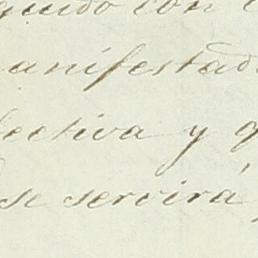 guido con
manifestad
fectiva y q
se servirá